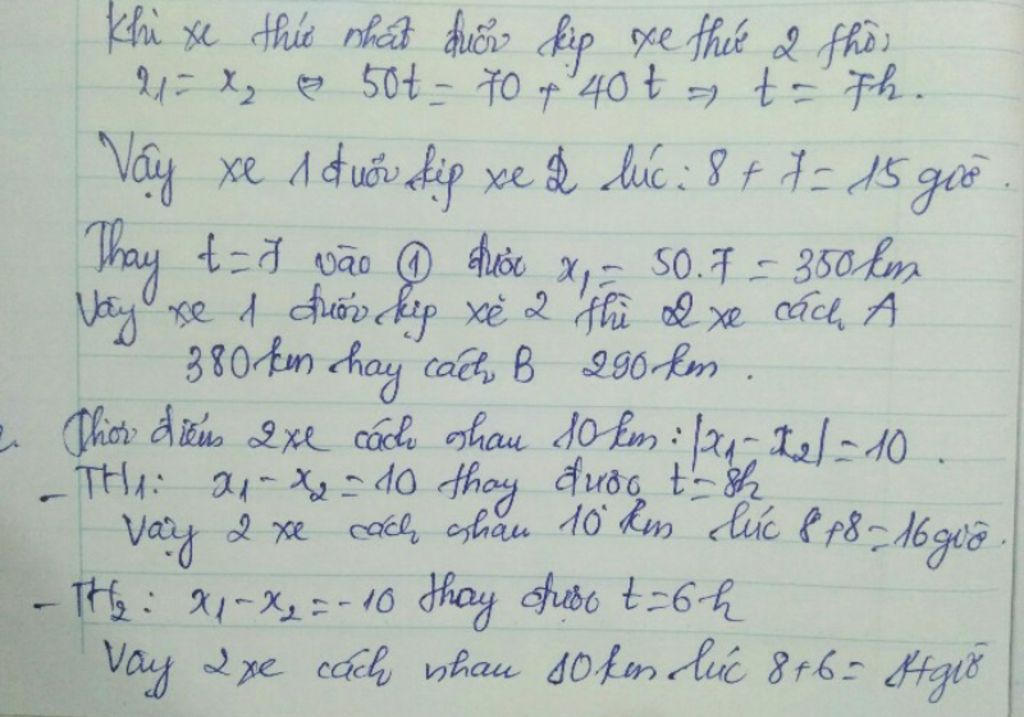 Khi xe thứ nhất đuổi kịp xe thứ 2 thì
x₁ = x₂ ⇔ 50t = 70 + 40t ⇒ t = 7h.
Vậy xe 1 đuổi kịp xe 2 lúc: 8 + 7 = 15 giờ.
Thay t = 7 vào ① được x₁ = 50.7 = 350km
Vậy xe 1 đuổi kịp xe 2 thì 2 xe cách A
380km hay cách B 290km.
2. Thời điểm 2 xe cách nhau 10km: |x₁ - x₂| = 10.
- TH₁: x₁ - x₂ = 10 thay được t = 8h
Vậy 2 xe cách nhau 10 km lúc 8+8 = 16 giờ.
- TH₂: x₁ - x₂ = -10 thay được t = 6h
Vậy 2 xe cách nhau 10km lúc 8+6 = 14 giờ